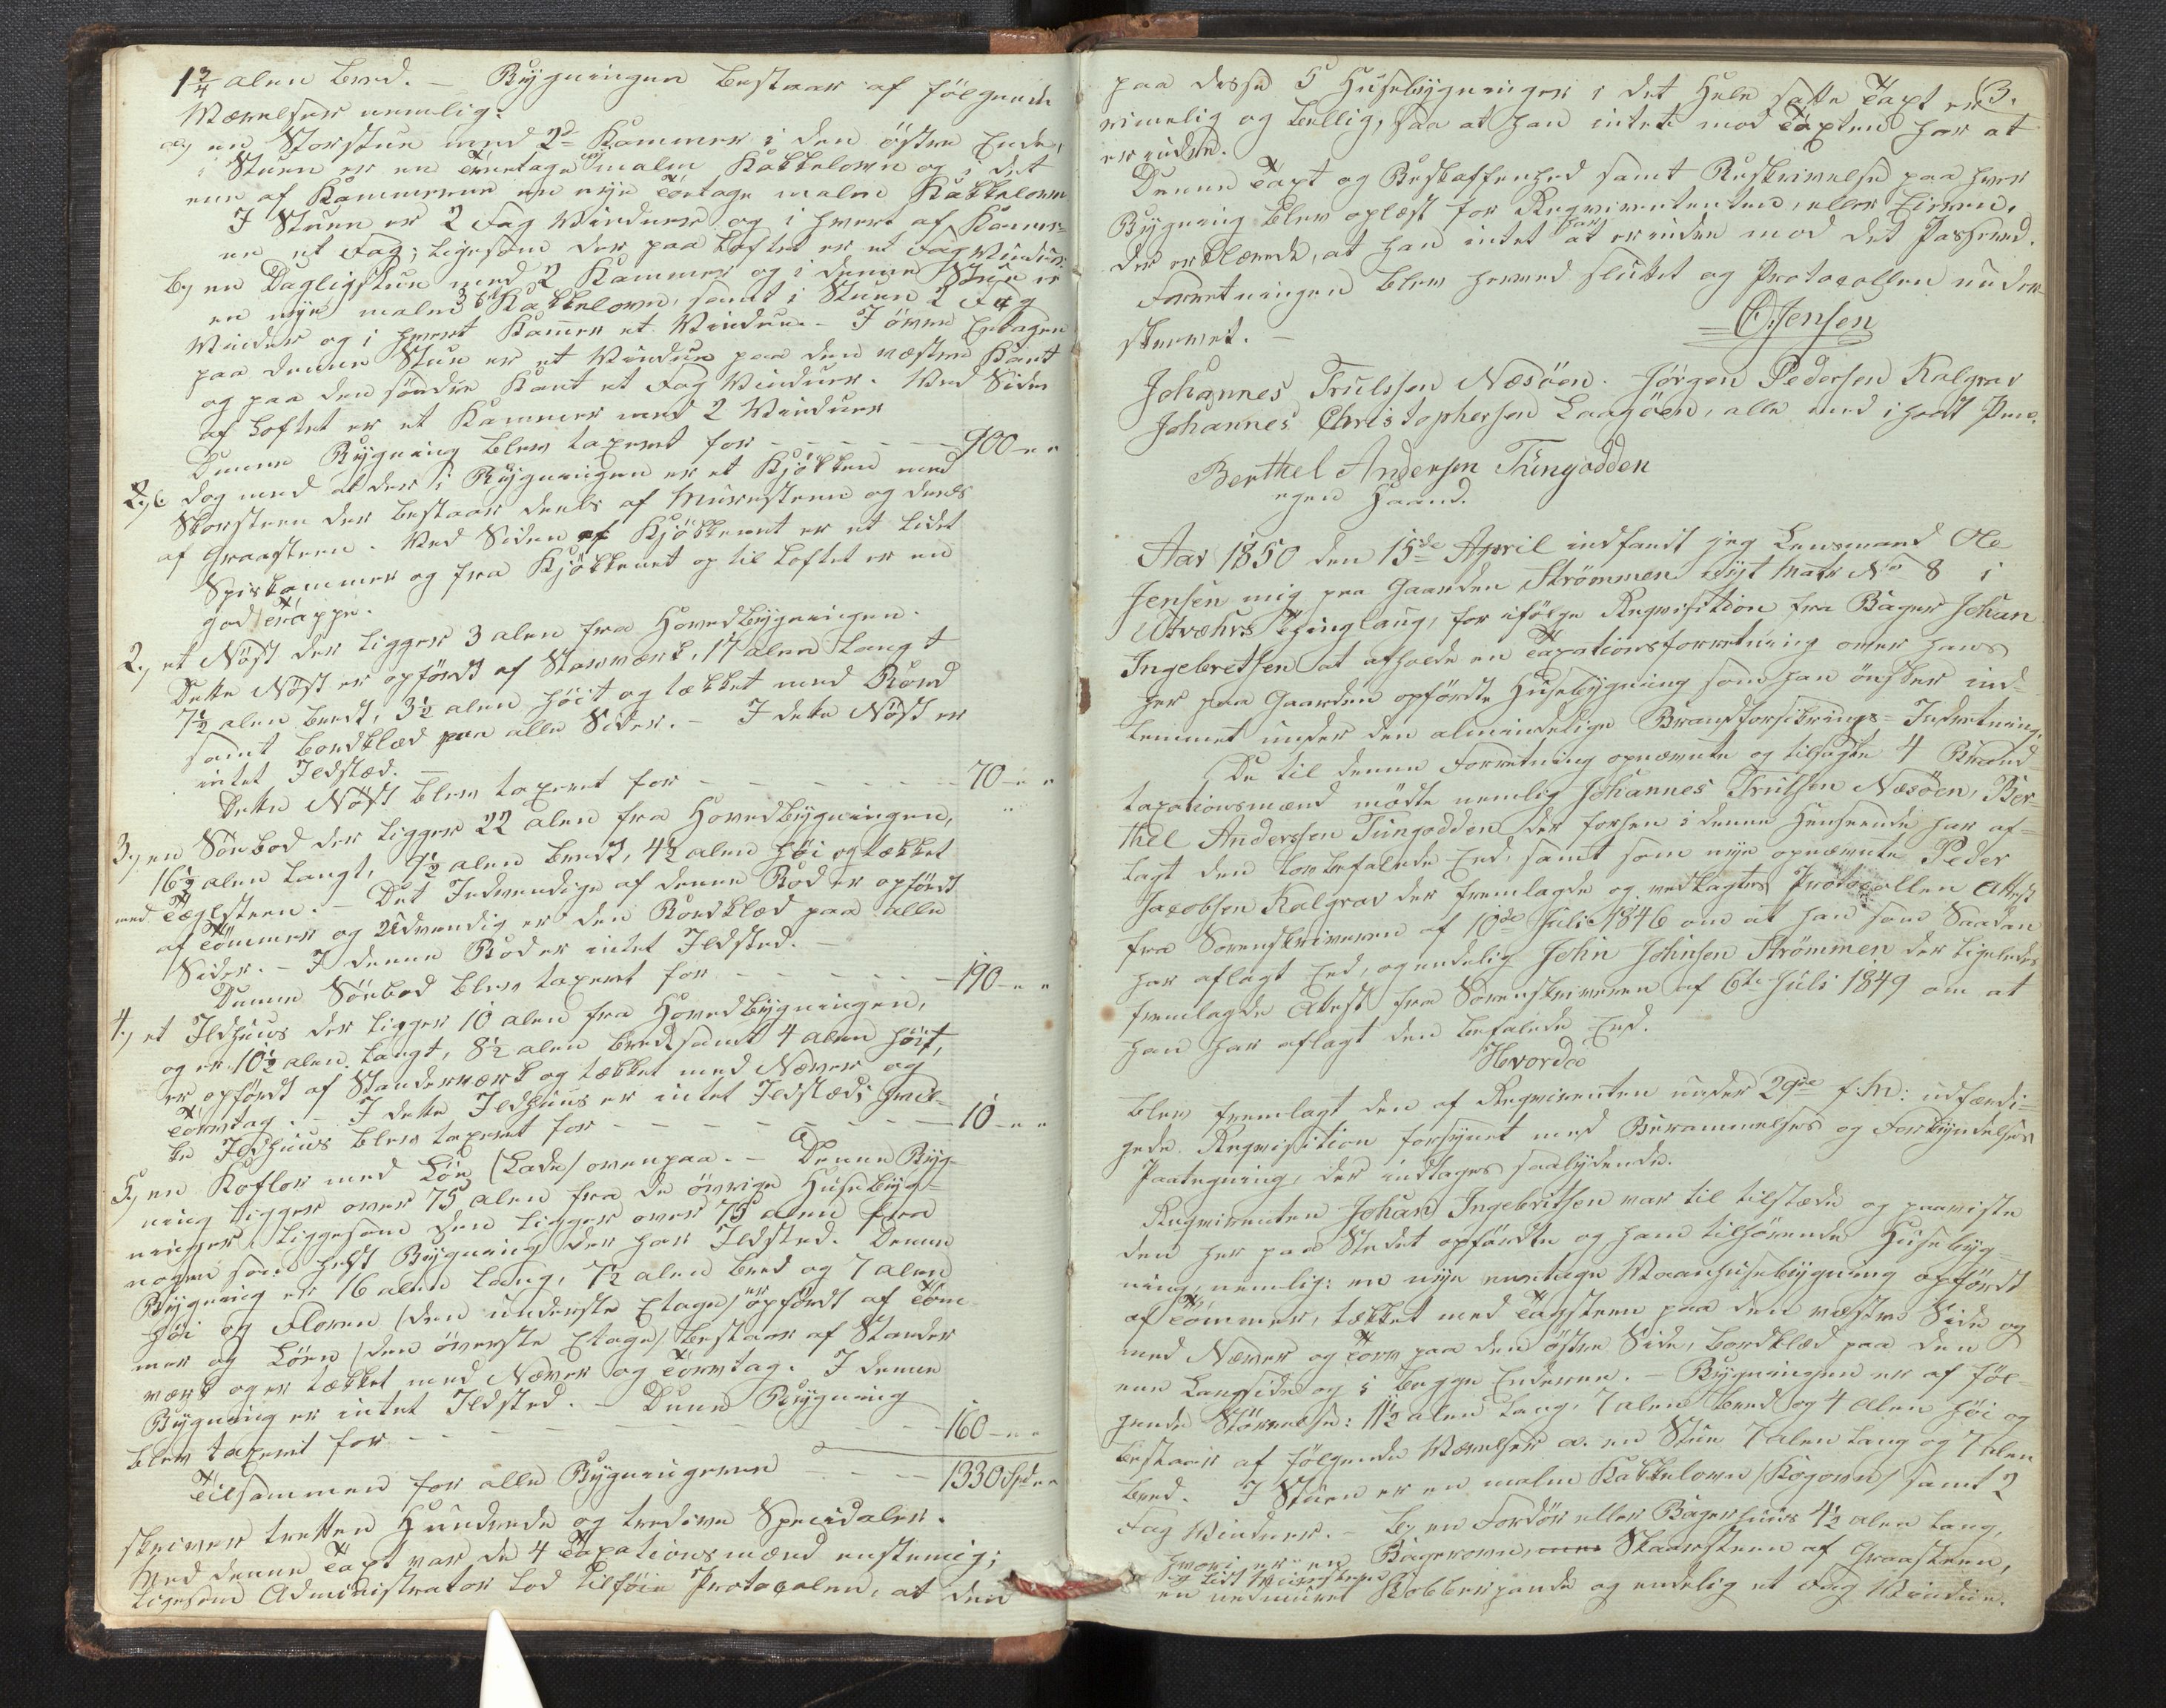 1 3/4 alen bred. – Bygningen bestaar af følgende
Værelser nemlig:
a, en Storstue med 2de Kammer i den östre Ende,
i Stuen er en Treetages malm Kakkelovn og i det
ene af Kammerne en nye Toetage malm Kakkelovn
I Stuen er 2 Fag Vinduer og i hvert af Kamer-
ne et Fag; ligesom der paa Loftet er et Fag Vinduer
b, en Dagligstue med 2 Kammer og i denne Stue er
en nye malm Kakkelovn, samt i Stuen 2 Fag
Vinduer og i hvert Kamer et Vindue. – I övre Etagen
paa denne Stue er et Vindue paa den væstre Kant
og paa den söndre Kant et Fag Vinduer. Ved Siden
af Loftet er et Kammer med 2 Vinduer
Denne Bygning blev taxeret for – – – – – 900 – „ „
dog med at der i Bygningen er et Kjökken med
Skorsteen der bestaar deels af Muursteen og deels
af Graasteen. Ved Siden af Kjökkenet er et lidet
Spiskammer og fra Kjökkenet op til Loftet er en
god Trappe.
2, et Nöst der ligger 3 alen fra Hovedbygningen.
Dette Nöst er opfördt af Stavværk, 17 alen langt
7 1/2 alen bredt, 3 1/2 alen höit og tækket med Bord
samt bordklæd paa alle Sider. – I dette Nöst er
intet Ildsted. –
Dette Nöst blev taxeret for – – – – – 70 – „ „
3, en Söebod der ligger 22 alen fra Hovedbygningen,
16 1/2 alen langt, 9 1/2 alen bredt, 4 1/2 alen höi og tækket
med Tæglsteen. – Det Indvendige af denne Bod er opfördt
af Tömmer og Udvendig er den Bordklæd paa alle
Sider. – I denne Bod er intet Ildsted. –
Denne Söebod blev taxeret for – – – – – 190 – „ „
4, et Ildhuus der ligger 10 alen fra Hovedbygningen,
og er 10 1/2 alen langt, 8 1/2 alen bredt samt 4 alen höit,
er opfördt af Standerværk og tækket med Næver og
Törvtag. – I dette Ildhuus er intet Ildsted; hvil-
ke Ildhuus blev taxeret for – – – – – 10 – „ „
5, en Koflor med Löe (Lade) ovenpaa. – Denne Byg-
ning ligger over 75 alen fra de övrige Husebyg-
ninger, liggesom den ligger over 75 alen fra
nogen som helst Bygning der har Ildsted. Denne
Bygning er 16 alen lang, 7 1/2 alen bred og 7 alen
höi og Floren (den underste Etage) er opfördt af Töm-
mer og Löen (den överste Etage) bestaar af Stander
værk og er tækket med Næver og Törvtag. I denne
Bygning er intet Ildsted. – Denne Bygning
blev taxeret for – – – – – 160 – „ „
Tilsammen for alle Bygningerne – – – 1330 Spd „ „
skriver tretten Hundrede og tredive Speciedaler.
Med denne Taxt var de 4 Taxationsmænd enstemig;
ligesom Administrator lod tilföie Protocolen, at den
3.
paa disse 5 Husebygninger i det Hele satte Taxt er
rimelig og billig, saa at han intet mod Taxten har at
erindre.
Denne Taxt og Beskaffenhed samt Beskrivelse paa hver
Bygning blev oplæst for Reqvirententen, eller Eieren,
der erklærede, at han intet har at erindre mod det Passered.
Forretningen blev hermed sluttet og Protocollen under-
skrevet. –
O. Jensen
Johannes Trulssen Næsöen. Jörgen Pedersen Kalgrav
Johannes Christophersen Laagöen, alle med i holdt Pen.
Berthel Andersen Tungodden
egen Haand.
Aar 1850 den 15de April indfandt jeg Lensmand Ole
Jensen mig paa Gaarden Strömmen nyt Matr No 8 i
Utvæhrs Thinglaug, for ifölge Reqvisition fra Bager Johan
Ingebretsen at afholde en Taxationsforretning over hans
her paa Gaarden opförte Husebygning som han önsker ind-
lemmet under den almindelige Brandforsikrings-Indretning.
De til denne Forretning opnævnte og tilsagte 4 Brand-
taxationsmænd mödte nemlig Johannes Trulsen Næsöen, Ber-
thel Anderssen Tungodden der forhen i denne Henseende har af-
lagt den lovbefalede Eed, samt som nye opnævnte Peder
Jacobsen Kalgrav der fremlagde og vedlagdes Protocollen Attest
fra Sorenskriveren af 10de Juli 1846 om at han som Saadan
har aflagt Eed, og endelig John Johnsen Strömmen der ligeledes
fremlagde Attest fra Sorenskriveren af 6te Juli 1849 om at
han har aflagt den befalede Eed.
Hvorda
blev fremlagt den af Reqvirenten under 29de f: M: udfærdi-
gede Reqvisition forsynet med Berammelses og Forkyndelses
Paategning, der indtages saalydende.
Reqvirenten Johan Ingebritsen var til tilstæde og paaviste
den her paa Stedet opfördte og ham tilhörende Husebyg-
ning nemlig: en nye eenetages Vaanhusebygning opfördt
af Tömmer, tækket med Tagsteen paa den væstre Side og
med Næver og Torv paa den östre Side, bordklæd paa den
ene Langside og i begge Enderne. – Bygningen er af föl-
gende Störrelse: 11 1/2 alen lang, 7 alen bred og 4 Alen höi og
bestaar af fölgende Værelser a. en Stue 7 alen lang og 7 alen
bred. I Stuen er en malm Kakkelovn (Kogovn) samt 2
Fag Vinduer. – b, en Fordör eller Bagerhuus 4 1/2 alen lang,
hvori er en Bagerovn, Skaarsteen af Graasteen,
og lidt Muursteen
en nedmuret Kobberpande og endelig et Fag Vindue.